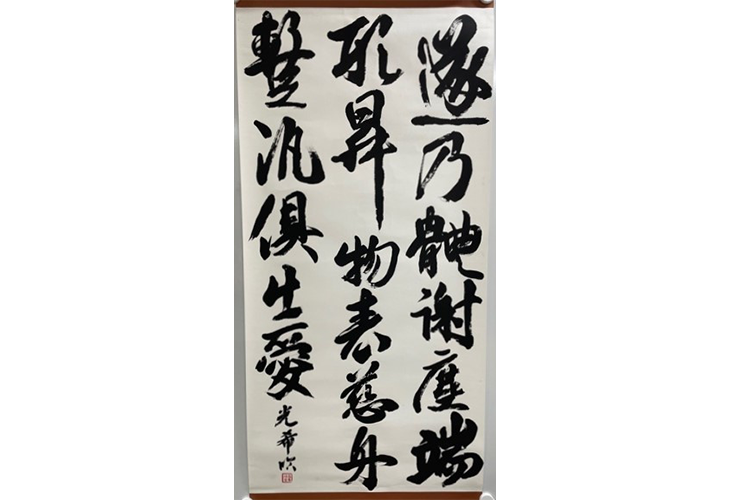 遂乃體謝塵端
形昇物表慈舟
整汎俱生愛
光希臨